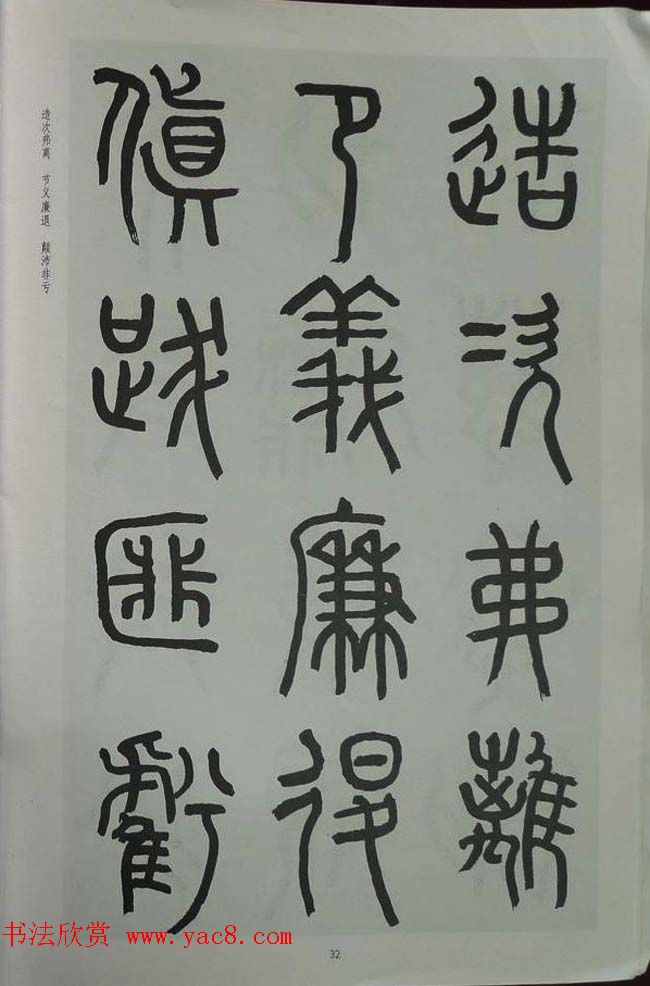 造次弗離
卪義廉退
傎跋匪虧
造次弗离 节义廉退 颠沛非亏
书法欣赏 www.yac8.com
32